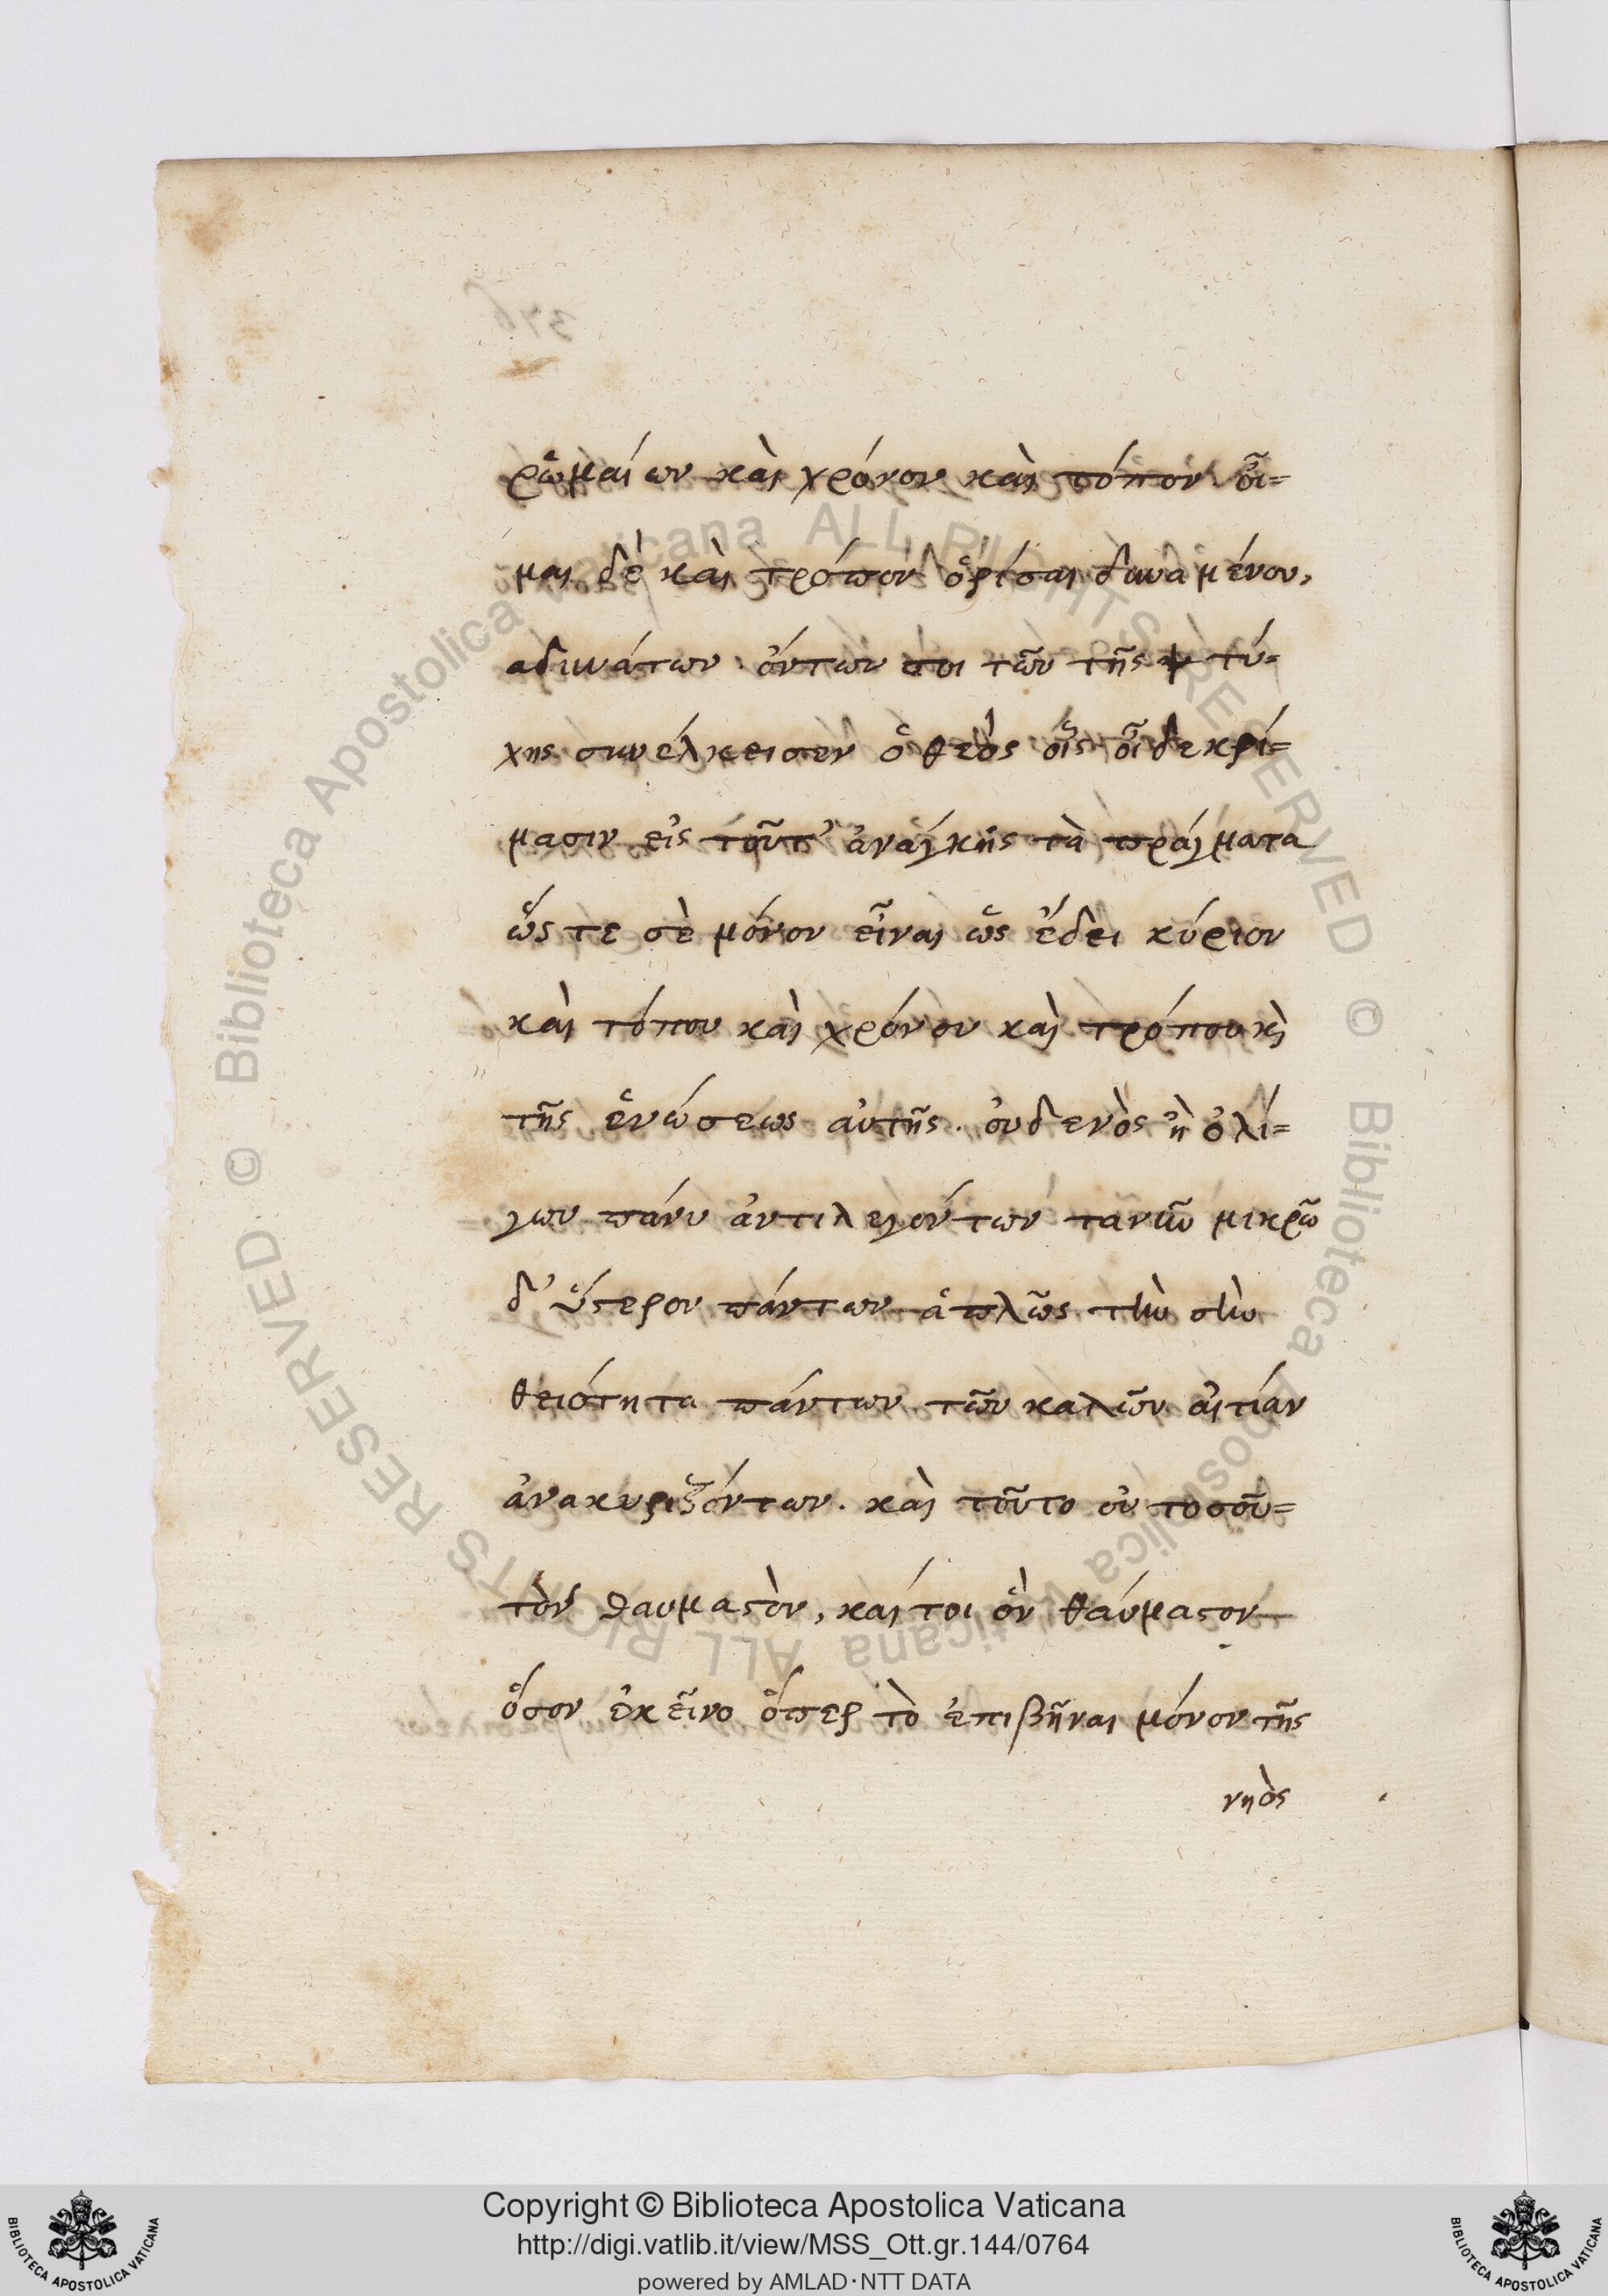 ῥωμαίων καὶ χρόνον καὶ τόπον οἶ=
μαι δὲ καὶ τρόπον ὁρίσαι δυναμένου,
αδυνάτων ὄντων σοι τῶν τῆς τύ=
χης συνέλκεισεν ὁ θεὸς οἷς οἶδε κρί=
μασιν εἰς τοῦτ' ἀνάγκης τὰ πράγματα
ὥς τε σὲ μόνον εἶναι ὡς ἔδει κύριον
καὶ τόπου καὶ χρόνου καὶ τρόπου κὶ
τῆς ἑνώσεως αὐτῆς. οὐδενὸς ἢ ὀλί=
γων πάνυ ἀντιλεγόντων τανῦν μικρῶ
δ' ὕστερον πάντων ἁπλῶς τὴν σὴν
θειότητα πάντων τῶν καλῶν αἰτίαν
ἀνακυριζόντων. καὶ τοῦτο οὐ τοσοῦ=
τὸν θαυμαστὸν, καίτοι ὂν θαύμαστον
ὅσον ἐκεῖνο ὅπερ τὸ ἐπιβῆναι μόνον τῆς
νηὸς
Copyright © Biblioteca Apostolica Vaticana
http://digi.vatlib.it/view/MSS_Ott.gr.144/0764
powered by AMLAD·NTT DATA
BIBLIOTECA APOSTOLICA VATICANA
BIBLIOTECA APOSTOLICA VATICANA
© Biblioteca Apostolica Vaticana ALL RIGHTS RESERVED
© Biblioteca Apostolica Vaticana ALL RIGHTS RESERVED